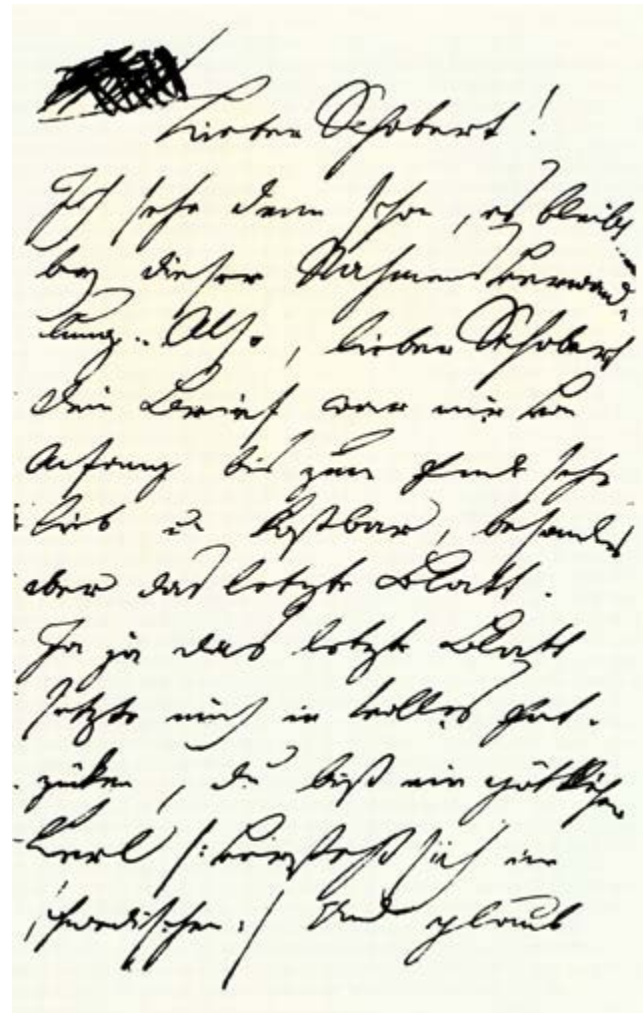 Lieber Schobert!
Ich sehe denn schon, es bleibt
bey dieser Nahmensverwand-
lung. Also, lieber Schobert
dein Brief war mir von
Anfang bis zum Ende sehr
lieb u. kostbar, besonders
aber das letzte Blatt.
Ja ja das letzte Blatt
setzte mich in volles Ent-
zücken, du bist ein göttlicher
Kerl /: versteht sich im
schwedischen :/ Und glaub